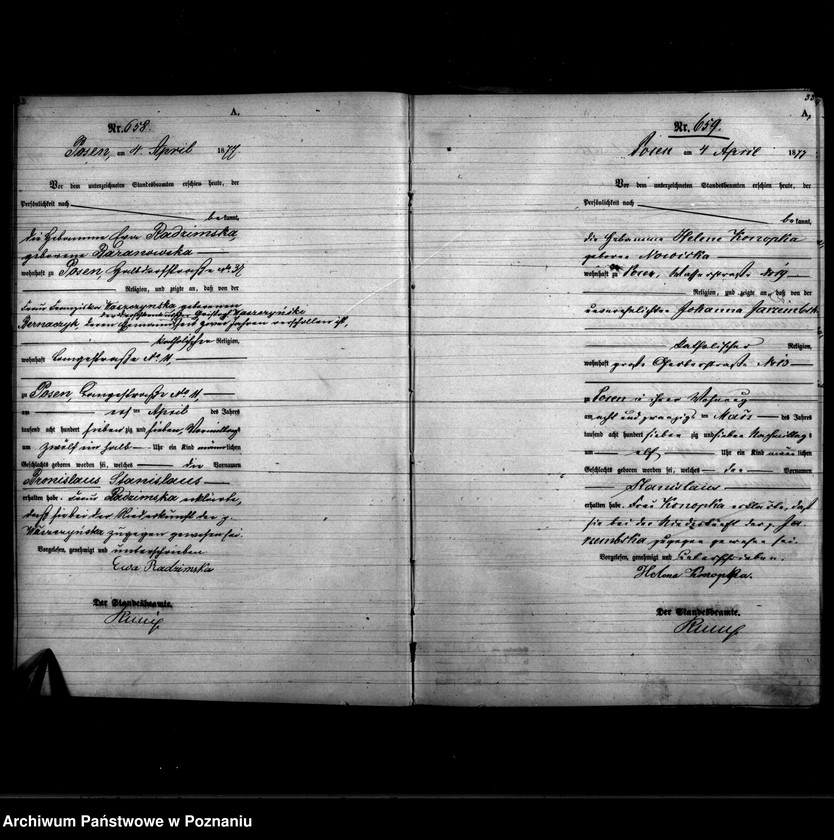 A.
Nr. 658.
Posen, am 4 April 1877
Vor dem unterzeichneten Standesbeamten erschien heute, der
Persönlichkeit nach
bekannt,
die Hebamme Ewa Radzimska,
geborene Baranowska
wohnhaft zu Posen, Halbdorfstraße No 37
Religion, und zeigte an, daß von der
Frau Franziska Waszczyńska geborenen
Bernaczyk, deren Ehemann seit zwei Jahren verschollen ist,
katholischer Religion,
wohnhaft Langestraße No 11,
zu Posen Langestraße No 11
am April des Jahres
tausend acht hundert sieben zig und sieben, Vormittags
um zwölf ein halb Uhr ein Kind männlichen
Geschlechts geboren worden sei, welches die Vornamen
Bronislaus Stanislaus
erhalten habe. Frau Radzimska erklärte,
daß sie bei der Niederkunft der p.
Waszczyńska zugegen gewesen sei.
Vorgelesen, genehmigt und unterschrieben
Ewa Radzimska
Der Standesbeamte.
A.
Nr. 659.
Posen am 4 April 1877
Vor dem unterzeichneten Standesbeamten erschien heute, der
Persönlichkeit nach
bekannt,
die Hebamme Helene Konopka
geborne Nowicka
wohnhaft zu Posen, Wasserstraße
Religion, und zeigte an, daß von der
unverehelichten Johanna Jarzembska
katholischer Religion,
wohnhaft große Gerberstraße
zu Posen in ihrer Wohnung
am acht und zwanzigsten März des Jahres
tausend acht hundert sieben zig und sieben Nachmittags
um elf Uhr ein Kind männlichen
Geschlechts geboren worden sei, welches den Vornamen
Stanislaus
erhalten habe. Frau Konopka erklärte, daß
sie bei der Niederkunft der p. Ja-
rzembska zugegen gewesen sei.
Vorgelesen, genehmigt und unterschrieben.
Helena Konopka.
Der Standesbeamte.
Archiwum Państwowe w Poznaniu